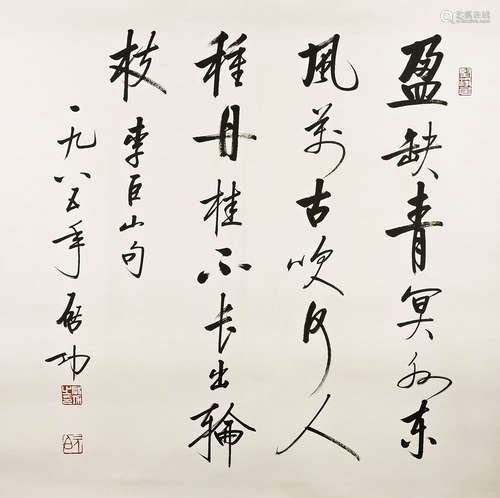 盈缺青冥外东
風萬古吹何人
種丹桂不长出輪
枝
李巨山句
一九八五年 启功